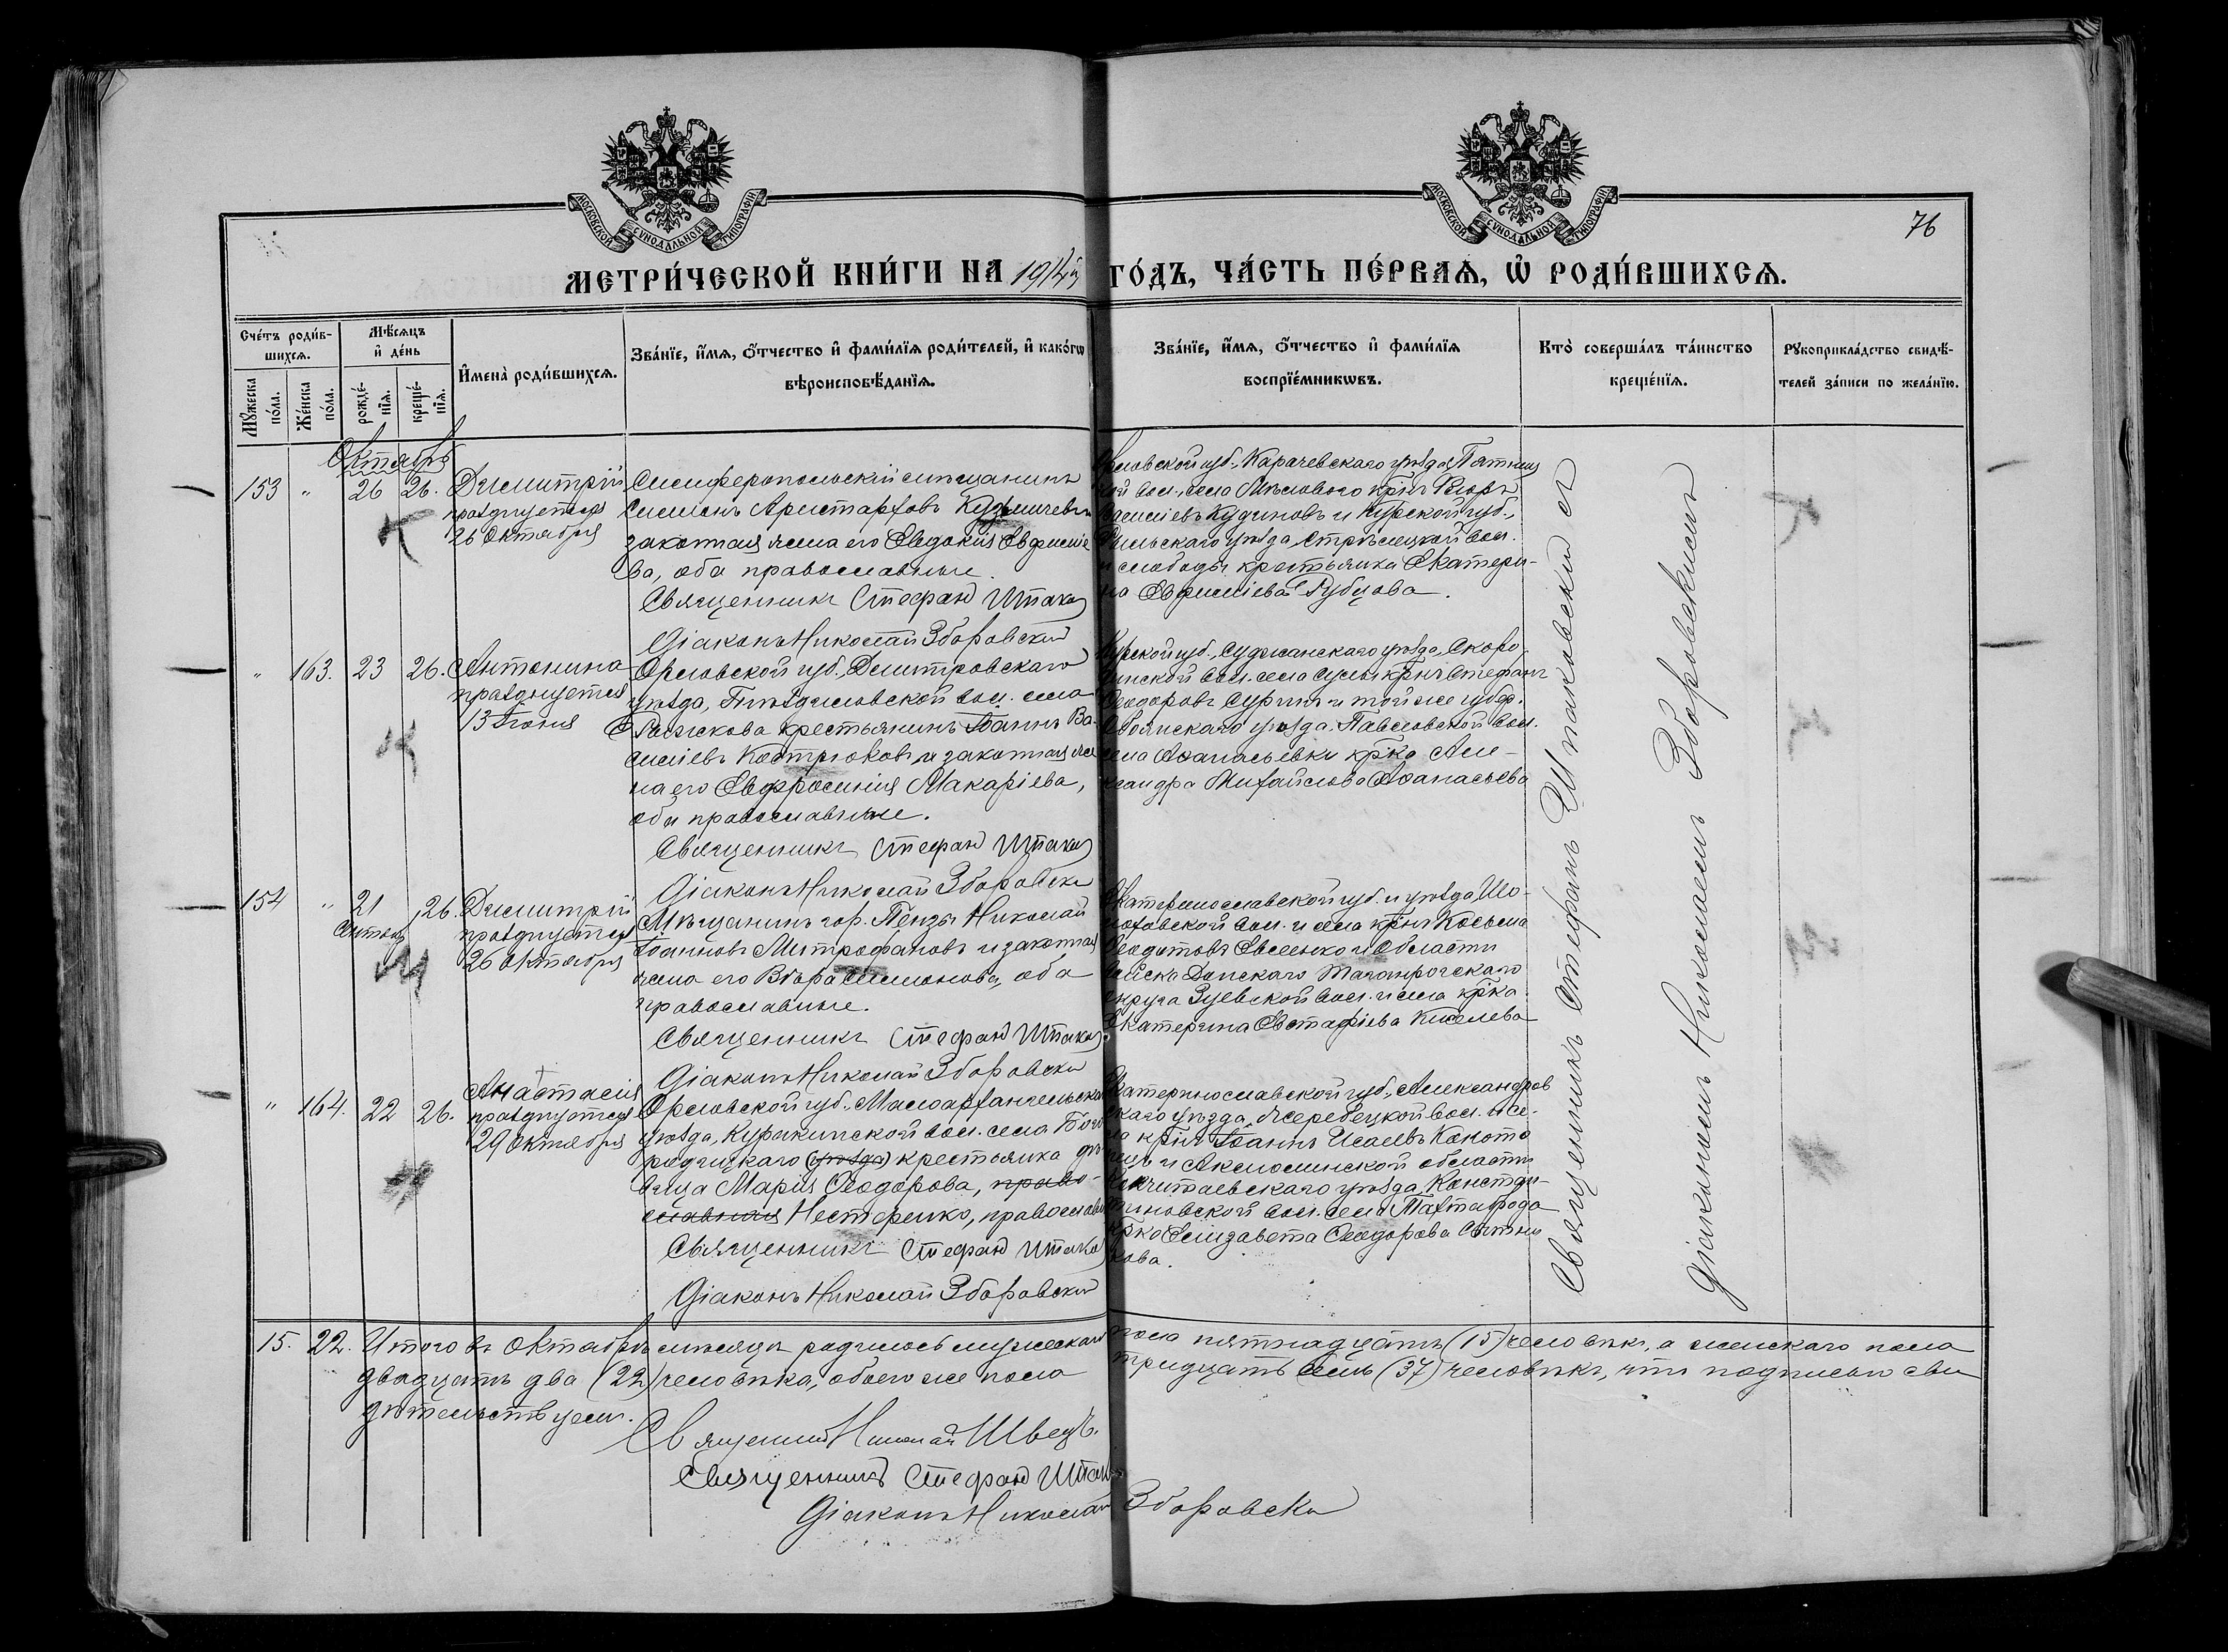 МОСКОВСКОЙ СУНОДАЛЬНОЙ ТИПОГРАФІИ
МОСКОВСКОЙ СУНОДАЛЬНОЙ ТИПОГРАФІИ
76
МЕТРИ́ЧЕСКОЙ КНИ́ГИ НА 1914й ГО́ДЪ, ЧА́СТЬ ПЕ́РВАѦ, Ѡ РОДИ́ВШИХСѦ.
Сче́тъ роди́в-
шихсѧ.
Мѣ́сѧцъ
и де́нь
Мꙋ́жеска
по́ла.
Же́нска
по́ла.
рожде́-
нїѧ.
креще́-
нїѧ.
Имена̀ роди́вшихсѧ.
Зва́нїе, и́мѧ, ѻ́тчество и фами́лїѧ роди́телей, и како́гѡ
вѣроисповѣ́данїѧ.
Зва́нїе, и́мѧ, ѻ́тчество и фами́лїѧ
воспрїе́мникѡвъ.
Кто̀ соверша́лъ та́инство
креще́нїѧ.
Рꙋкоприкла́дство свидѣ́-
телей за́писи по жела́нїю.
Октябрь
153 " 26 26.
Димитрій
празднуется
26 Октября
Симферопольскій мѣщанинъ
Симеонъ Аристарховъ Кузмичевъ и
законная жена его Евдокія Евфиміе
ва, оба православные.
Священникъ Стефанъ Штако
Діаконъ Николай Зборовскій
Орловской губ., Карачевскаго уѣзда, Пятниц
кой вол., села Мѣловаго крнъ Егоръ
Кудиновъ и Курской губ.,
Рыльскаго уѣзда, Стрѣлецкой вол.
и слободы крестьянка Екатери-
на Евфиміева Рубцова.
" 163. 23 26.
Антонина
празднуется
13 Іюня
Орловской губ. Дмитровскаго
уѣзда, Гнѣздиловской вол. села
крестьянинъ Іоаннъ Ва-
силіевъ Костюковъ и законная же
на его Евфросинія Макаріева,
оба православные.
Священникъ Стефанъ Штако
Діаконъ Николай Зборовски
Курской губ., Суджанскаго уѣзда, Скоро
динской вол. села крнъ Стефанъ
Ѳеодоровъ Суринъ и той же губ.,
Обоянскаго уѣзда, Павловской вол.
села Аѳанасьевки крка Але-
ксандра Михайлова Аѳанасьева
154 " 21 26.
Октябр
Димитрій
празднуется
26 Октября
Мѣщанинъ гор. Пензы Николай
Іоанновъ Митрофановъ и законная
жена его Вѣра Симонова, оба
православные.
Священникъ Стефанъ Штако
Діаконъ Николай Зборовски
Екатеринославской губ. и уѣзда, Шо-
лоховской вол. и села крнъ Косьма
Ѳеодотовъ Евсенко и Области
Войска Донскаго Таганрогскаго
округа Зуевской вол. и села крка
Екатерина Евстафіева Киселева
" 164. 22 26.
Анастасія
празднуется
29 Октября
Орловской губ., Малоархангельска
уѣзда, Куракинской вол. села Бого
родицкаго (уѣзда) крестьянка дѣ
вица Марія Ѳеодорова, право-
славная Нестеренко, православн
Священникъ Стефанъ Штако
Діаконъ Николай Зборовскій
Екатеринославской губ., Александров
скаго уѣзда, Жеребецкой вол. и се-
ла крнъ Іоаннъ Исаевъ Коното
пецъ и Акмолинской области
Кокчитаевскаго уѣзда, Констан-
тиновской вол. села
крка Елизавета Ѳеодорова Сытни
кова.
Священникъ Стефанъ Штаковски съ
Діакономъ Николаемъ Зборовскимъ
15. 22. Итого въ Октябрѣ мѣсяцѣ родилось мужескаго пола пятнадцать (15) человѣкъ, а женскаго пола
двадцать два (22) человѣка, обоего же пола тридцать семь (37) человѣкъ, что подписью сви
дѣтельствуемъ.
Священникъ Николай Швецъ.
Священникъ Стефанъ Штако
Діаконъ Николай Зборовски